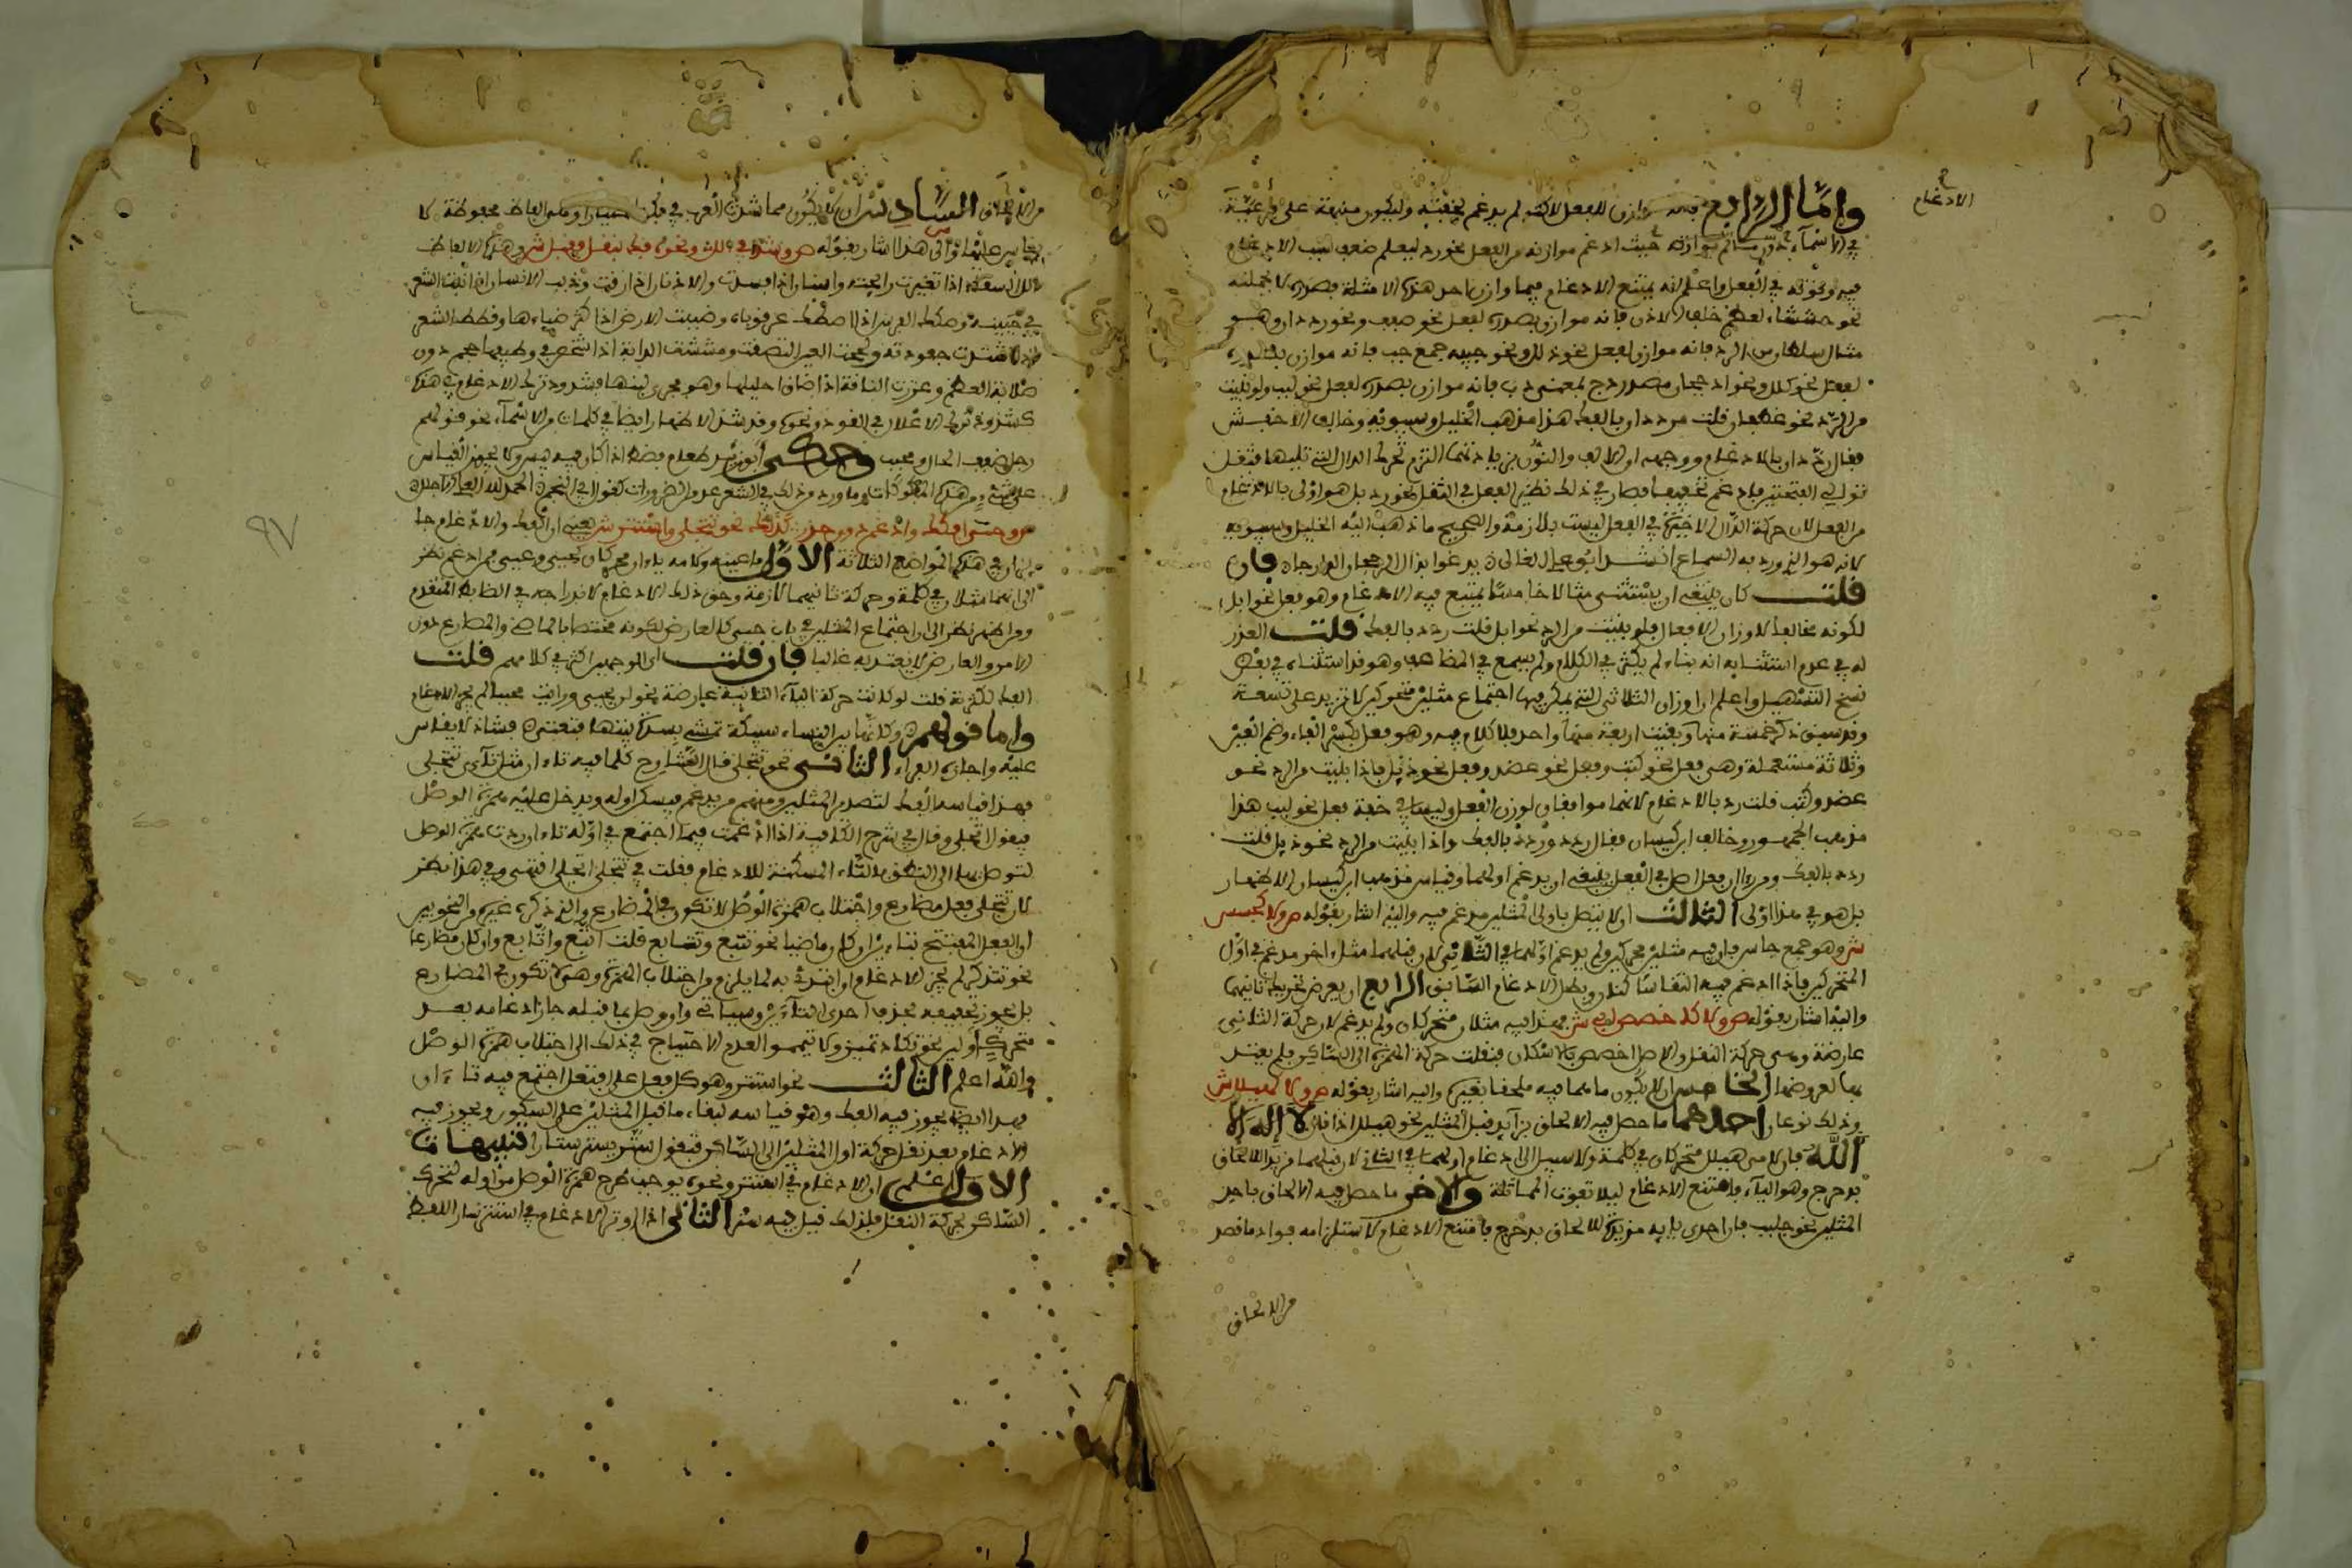 الادغام
واما الرابع فانه موازن للفعل لاكنه لم يدغم لخفته وليكون منبهة على فرعية
في الاسماء حيث ادغم موازنه من الفعل نحو رد ليعلم ضعف سبب الادغام
فيه وقوته في الفعل واعلم انه يمتنع الادغام فيما وازن احد هذه الامثلة بصدره لا بجملته
نحو خششاء لعظم خلف الاذن فانه موازن بصدره لفعل نحو صفف ونحو رددان وهو
مثال سلطان من الرد فانه موازن لفعل نحو ذلل ونحو حببة جمع حب فانه موازن بصدره
لفعل نحو كلل ونحو الدججان مصدر دج بمعنى دب فانه موازن بصدره لفعل نحو لبب ولو بنيت
من الرد نحو غطفان قلت رددان بالفك هذا مذهب الخليل وسيبويه وخالف الاخفش
فقال ردان بالادغام ووجهه ان الالف والنون بزيادتهما التزم تحريك الدال التي تليهما فثقل
توالي الفتحتين فادغم تخفيفا فصار في ذلك نظير الفعل في الثقل نحو رد بل هو اولى بالادغام
من الفعل لان حركة الدال الاخيرة في الفعل ليست بلازمة والصحيح ما ذهب اليه الخليل وسيبويه
لانه هو الذي ورد به السماع انشد ابو علي القالي
فان
قلت كان ينبغي ان يستثنى مثالا خامسا يمتنع فيه الادغام وهو فعل نحو ابل
لكونه مخالفا لاوزان الافعال فلو بنيت من الرد نحو ابل قلت ردد بالفك قلت العذر
له في عدم استثنائه انه بناء لم يكثر في الكلام ولم يسمع في المضاعف وقد استثناه في بعض
نسخ التسهيل واعلم ان اوزان الثلاثي التي يمكن فيها اجتماع مثلين متحركين لا تزيد على تسعة
وقد سبق ذكر خمسة منها وبقيت اربعة منها واحد فلا كلام فيه وهو فعل بكسر الفاء وضم العين
وثلاثة مستعملة وهي فعل نحو كتف وفعل نحو عضد وفعل نحو دئل فاذا بنيت من الرد نحو
عضد وكتف قلت رد بالادغام لانهما موافقان لوزن الفعل وليسا في خفة فعل نحو لبب هذا
مذهب الجمهور وخالف ابن كيسان فقال ردد وردد بالفك واذا بنيت من الرد نحو دئل قلت
ردد بالفك ومن رأى ان فعل اصل في الفعل ينبغي ان يدغم اولهما وقياس مذهب ابن كيسان الاظهار
بل هو في هذا اولى الثالث ان لا يتصل باول المثلين مدغم فيه واليه اشار بقوله ص ولا كجسس
ش وهو جمع جاس فان فيه مثلين محركين ولم يدغم اولهما في الثاني لان قبلهما مثلا اخر مدغم في اول
المتحركين فاذا ادغم فيه التقى ساكنان وبطل الادغام السابق الرابع ان لا يعرض تحريك ثانيهما
واليه اشار بقوله ص ولا كاخصص ابي ش فهذا فيه مثلان متحركان ولم يدغم لان حركة الثاني
عارضة وهي حركة النقل والاصل اخصص بالاسكان فنقلت حركة الهمزة الى الساكن فلم يعتد
بها لعروضها الخامس ان لا يكون ما هما فيه ملحقا بغيره واليه اشار بقوله ص ولا كهيلل ش
وذلك نوعان احدهما ما حصل فيه الالحاق بزائد قبل المثلين نحو هيلل اذا قال لا اله الا
الله فان لامي هيلل متحركان في كلمة ولا سبيل الى ادغام اولهما في الثاني لان قبلهما مزيدا للالحاق
بدحرج وهو الياء فامتنع الادغام ليلا تفوت المماثلة والاخر ما حصل فيه الالحاق باحد
المثلين نحو جلبب فان احدى بائيه مزيدة للالحاق بدحرج فامتنع الادغام لاستلزامه فوات ما قصد
من الالحاق
من الالحاق السادس ان لا يكون مما شذت العرب في فكه اختيارا وهي الفاظ محفوظة لا
يقاس عليها والى هذا اشار بقوله ص وشذ في الل ونحوه فك بنقل فقبل ش وهذه الالفاظ
الل السقاء اذا تغيرت رائحته واسنان اذا فسدت والاذن اذا رقت ودبب الانسان اذا نبت الشعر
في جبينه وصكك الفرس اذا اصطك عرقوباه وضببت الارض اذا كثر ضبابها وقطط الشعر
اذا اشتدت جعودته ولححت العين التصقت ومششت الدابة اذا شخص في وظيفها حجم دون
صلابة العظم وعززت الناقة اذا ضاق احليلها وهو مجرى لبنها فشذوذ ترك الادغام في هذه
كشذوذ ترك الاعلال في القود ونحوه وقد شذ الاظهار ايضا في كلمات من الاسماء نحو قولهم
رجل ضفف الحال ومحبب وحكى ابو زيد طعام قضض اذا كان فيه يبس ولا يجوز القياس
على شيء من هذه المفكوكات وما ورد من ذلك في الشعر عد من الضرورات كقول ابي النجم الحمد لله العلي الاجلل
ص وحيي افكك وادغم دون حذر كذاك نحو تتجلى واستتر ش يعني ان الفك والادغام جا
يزان في هذه المواضع الثلاثة الاول ما عينه ولامه ياءان محركتان كحيي وعيي فمن ادغم نظر
الى انهما مثلان في كلمة وحركة ثانيهما لازمة وحق ذلك الادغام لاندراجه في الضابط المتقدم
ومن اظهر نظر الى ان اجتماع المثلين في باب حيي كالعارض لكونه مختصا بالماضي والمضارع دون
الامر والعارض لا يعتد به غالبا فان قلت اي الوجهين اكثر في كلامهم قلت
الفك لكثرته قلت لو كانت حركة الياء الثانية عارضة نحو لن يحيي ورايت محييا لم يجز الادغام
واما قولهم وكانها بين النساء سبيكة تمشي بسدة بيتها فتعي فشاذ لا يقاس
عليه واجازه الفراء الثاني نحو تتجلى قال الشارح كلما فيه تاءان مثل تاءي تتجلى
فهذا قياسه الفك لتصدر المثلين ومنهم من يدغم فيسكن اوله ويدخل عليه همزة الوصل
فيقول اتجلى وقال في شرح الكافية اذا ادغمت فيما اجتمع في اوله تاءان زدت همزة الوصل
لتتوصل بها الى النطق بالتاء المسكنة للادغام فقلت في تتجلى اتجلى انتهى وفي هذا نظر
لان تتجلى فعل مضارع واجتلاب همزة الوصل لا تكون في المضارع والذي ذكره غيره من النحويين
ان الفعل المفتتح بتاءين ان كان ماضيا نحو تتبع وتتابع قلت اتبع واتابع وان كان مضارعا
نحو تتذكر لم يجز الادغام ان ابتدئ به لما يلزم من اجتلاب الهمزة وهي لا تكون في المضارع
بل يجوز تخفيفه بحذف احدى التاءين وسياتي وان وصل بما قبله جاز ادغامه بعد
متحرك او لين نحو تكاد تميز ولا تيمموا لعدم الاحتياج في ذلك الى اجتلاب همزة الوصل
والله اعلم الثالث نحو استتر وهو كل فعل على افتعل اجتمع فيه تاءان
فهذا ايضا يجوز فيه الفك وهو قياسه لبناء ما قبل المثلين على السكون ويجوز فيه
الادغام بعد نقل حركة اول المثلين الى الساكن فتقول ستر يستر ستارا تنبيهات
الاول اعلم ان الادغام في استتر ونحوه يوجب طرح همزة الوصل من اوله لتحرك
الساكن بحركة النقل فلذلك قيل فيه ستر الثاني اذا اوثر الادغام في استتر صار اللفظ
٩٧